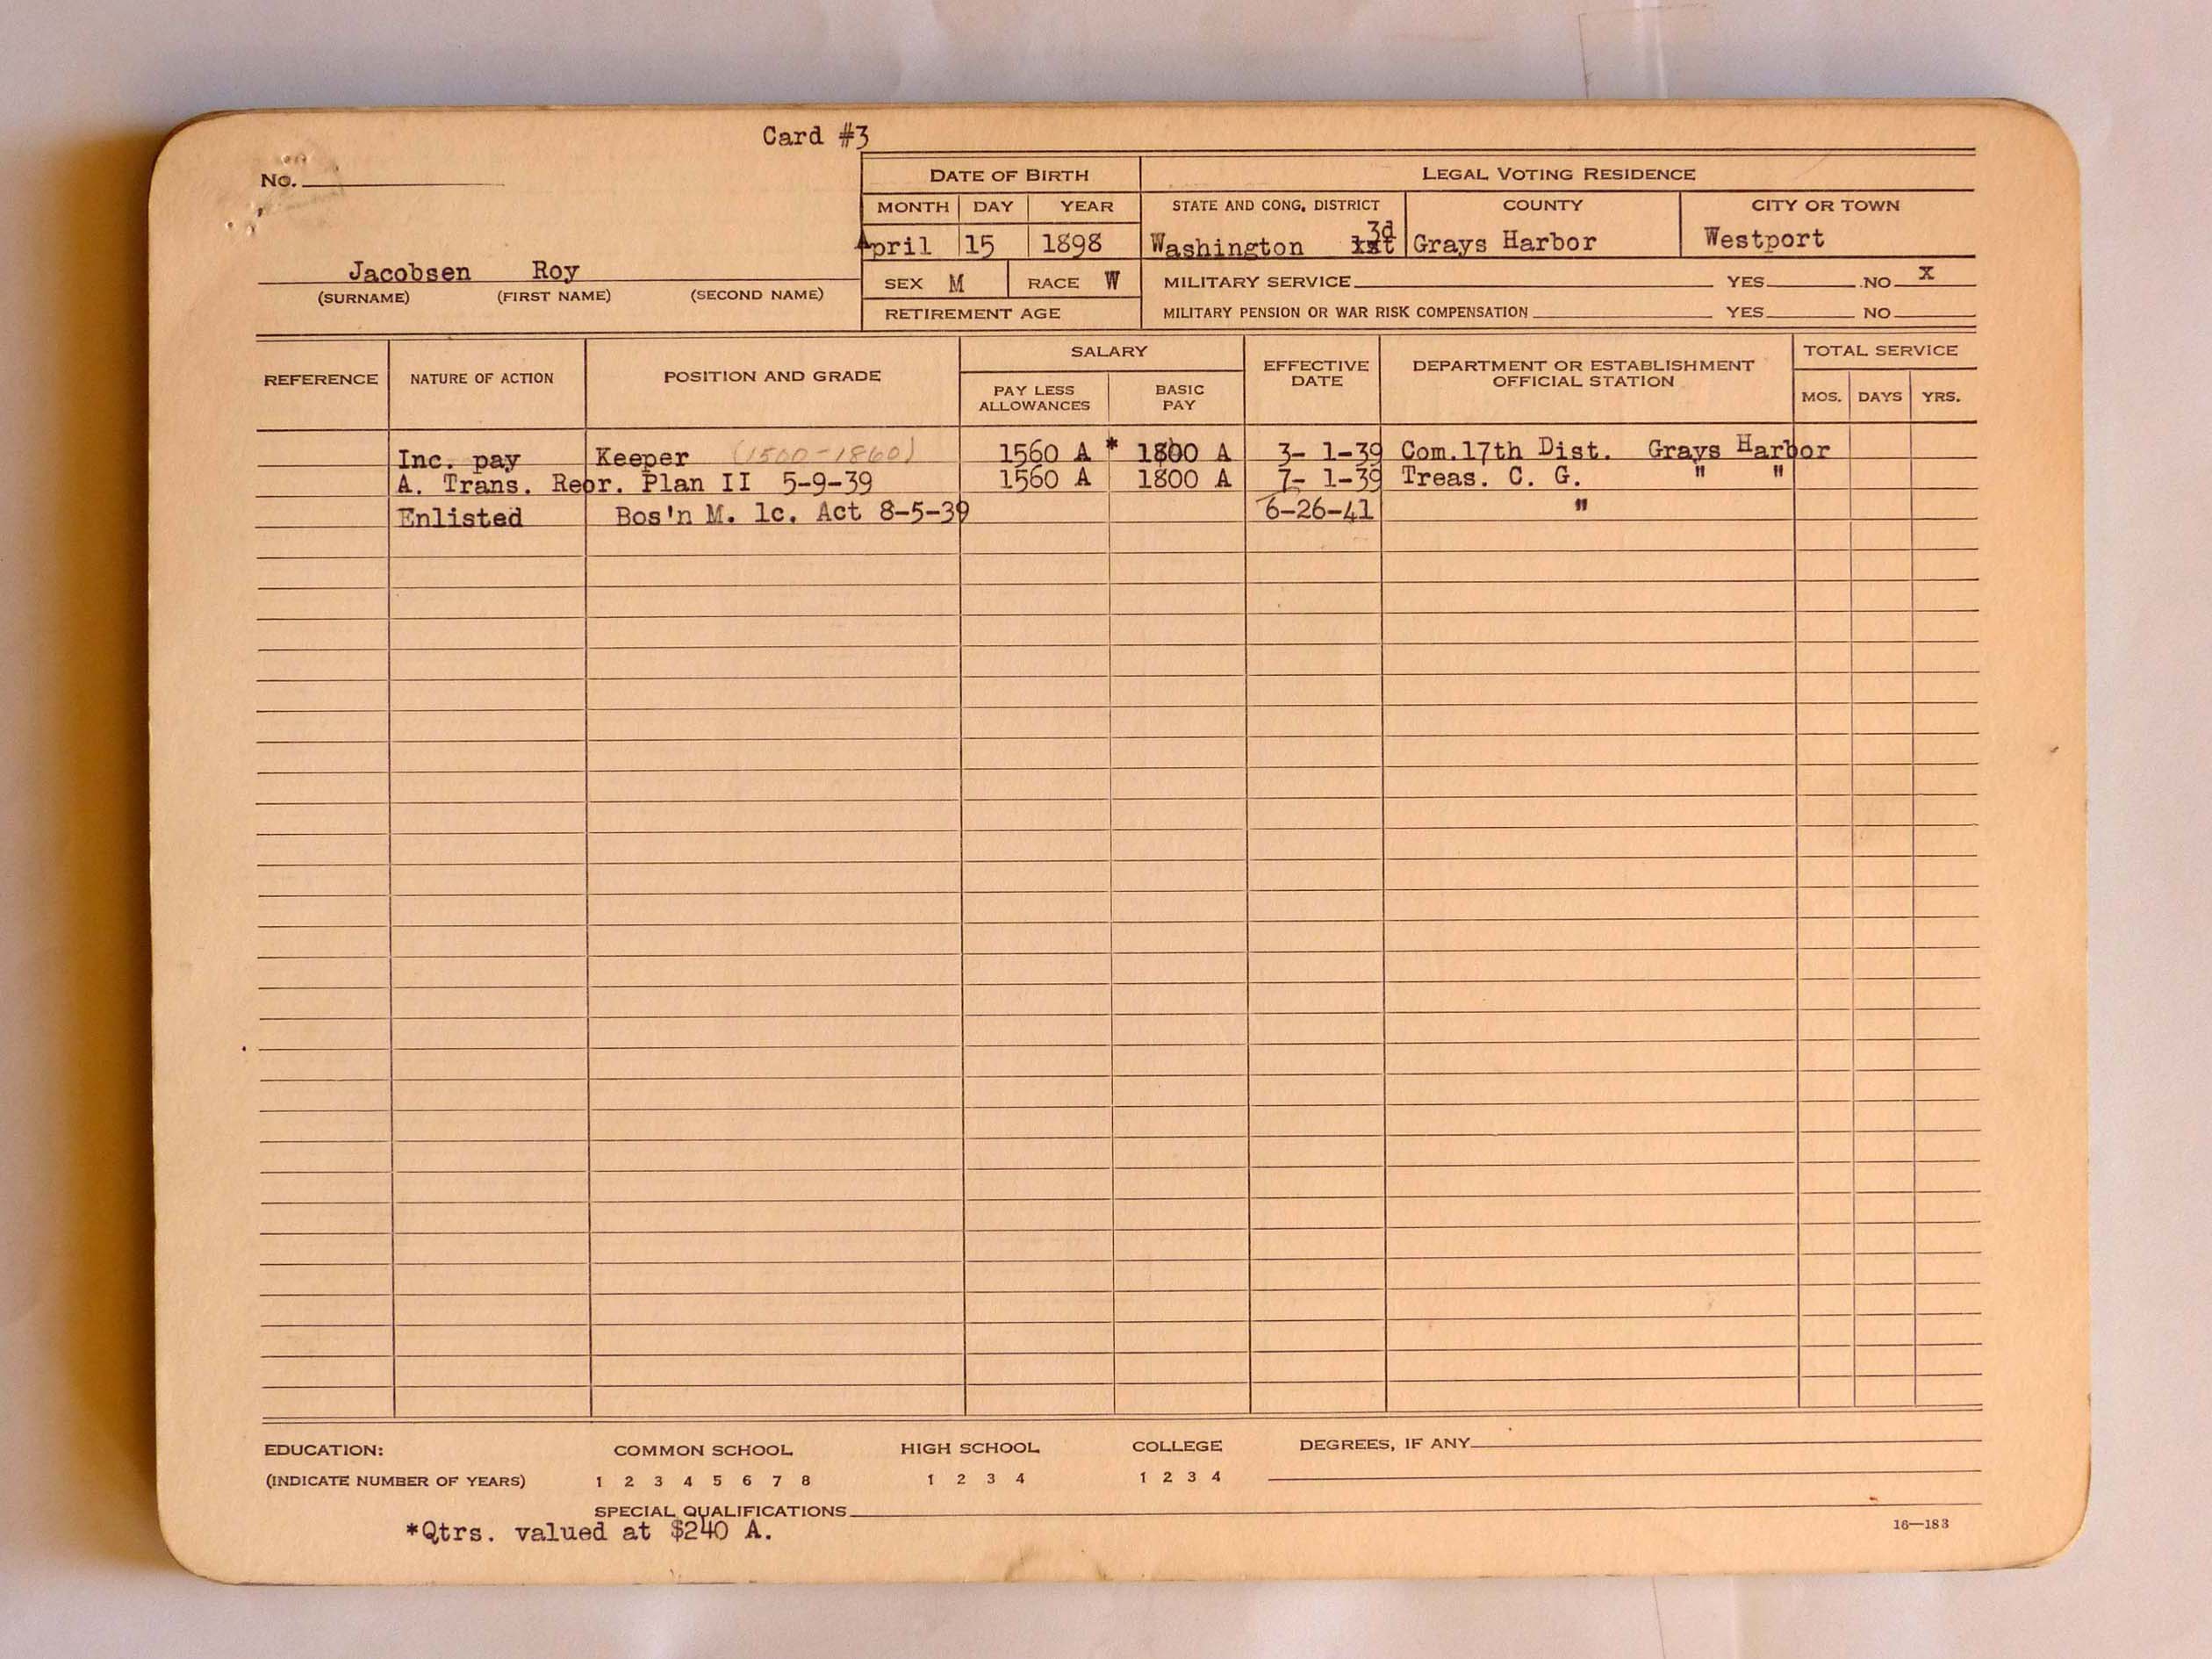 Card #3
No.
DATE OF BIRTH
LEGAL VOTING RESIDENCE
MONTH DAY YEAR
STATE AND CONG. DISTRICT COUNTY CITY OR TOWN
April 15 1898
Washington 1st 3d Grays Harbor Westport
Jacobsen Roy
(SURNAME) (FIRST NAME) (SECOND NAME)
SEX M RACE W
MILITARY SERVICE YES NO X
RETIREMENT AGE
MILITARY PENSION OR WAR RISK COMPENSATION YES NO
REFERENCE NATURE OF ACTION POSITION AND GRADE
SALARY
PAY LESS ALLOWANCES
BASIC PAY
EFFECTIVE DATE
DEPARTMENT OR ESTABLISHMENT
OFFICIAL STATION
TOTAL SERVICE
MOS. DAYS YRS.
Inc. pay Keeper (1500-1860) 1560 A * 1800 A 3- 1-39 Com.17th Dist. Grays Harbor
A. Trans. Reor. Plan II 5-9-39 1560 A 1800 A 7- 1-39 Treas. C. G. " "
Enlisted Bos'n M. 1c. Act 8-5-39 6-26-41 "
EDUCATION: COMMON SCHOOL HIGH SCHOOL COLLEGE DEGREES, IF ANY
(INDICATE NUMBER OF YEARS) 1 2 3 4 5 6 7 8 1 2 3 4 1 2 3 4
SPECIAL QUALIFICATIONS
*Qtrs. valued at $240 A.
16—183